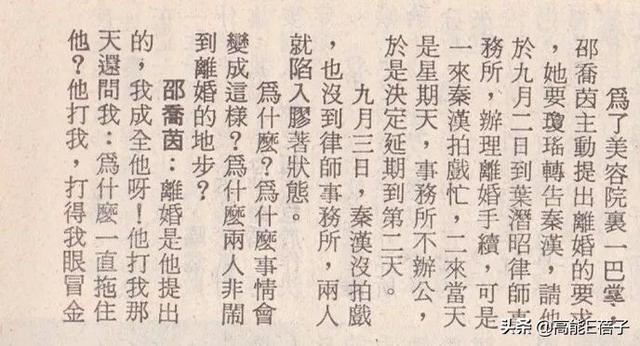 為了美容院裏一巴掌，
邵喬茵主動提出離婚的要求
，她要瓊瑤轉告秦漢，請他
於九月二日到葉潛昭律師事
務所，辦理離婚手續，可是
一來秦漢拍戲忙，二來當天
是星期天，事務所不辦公，
於是決定延期到第二天。
九月三日，秦漢沒拍戲
，也沒到律師事務所，兩人
就陷入膠著狀態。
為什麼？為什麼事情會
變成這樣？為什麼兩人非鬧
到離婚的地步？
邵喬茵：離婚是他提出
的，我成全他呀！他打我那
天還問我：為什麼一直拖住
他？他打我，打得我眼冒金
头条 @高能E蓓子